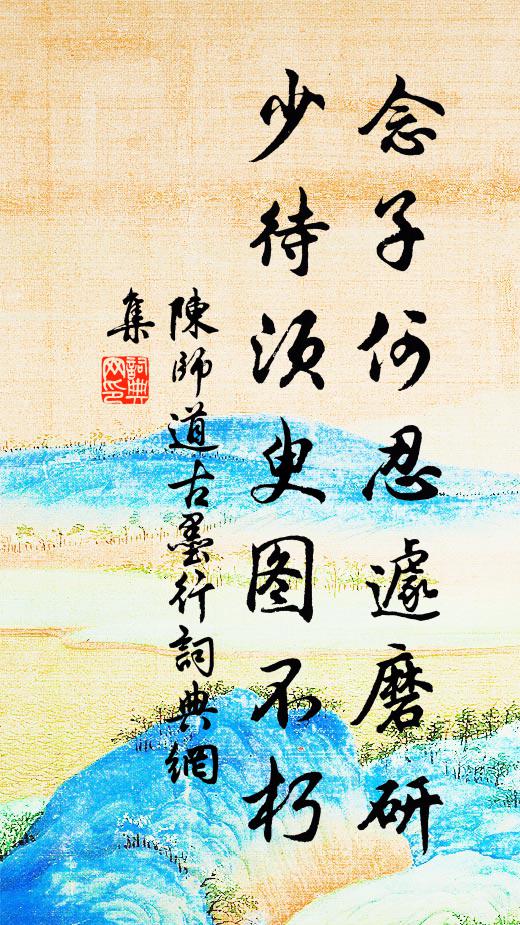 念子何忍遽磨研
少待须臾图不朽
陳師道古墨行詞典網
集
詞典
网印